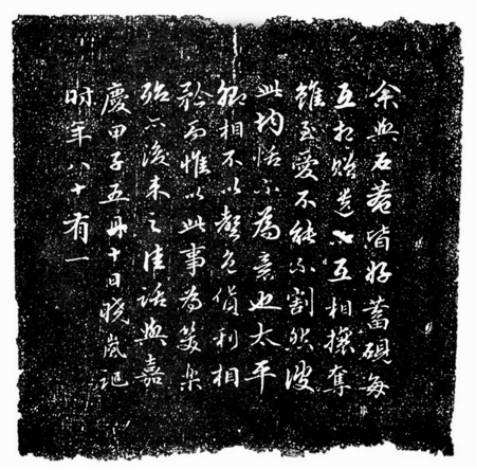 余與石菴皆好蓄硯每
互相貽遺亦互相攘奪
雖至愛不能不割然彼
此均恬不為意也太平
卿相不以聲色貨利相
矜而惟以此事為笑樂
殆亦後来之佳話與嘉
慶甲子五月十日曉嵐記
时年八十有一